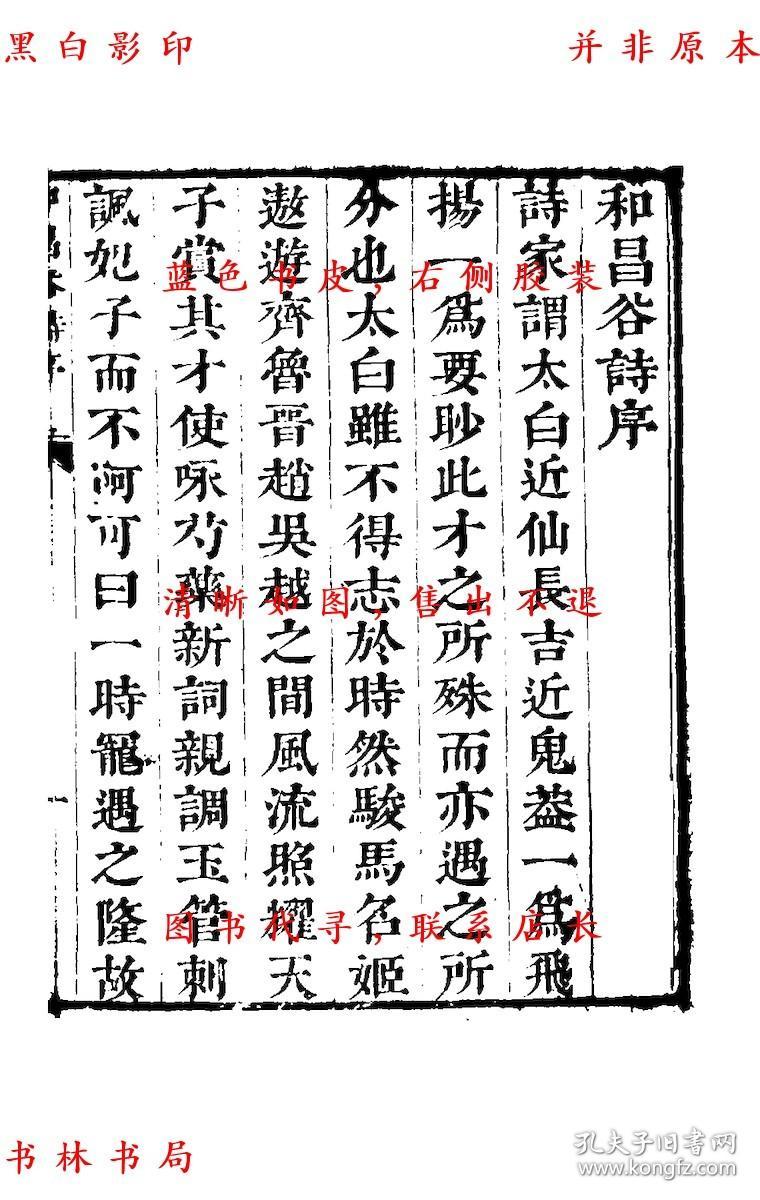 黑白影印
并非原本
和昌谷詩序
詩家謂太白近仙長吉近鬼葢一爲飛
揚一爲要眇此才之所殊而亦遇之所
分也太白雖不得志於時然駿馬名姬
遨遊齊魯晋趙吳越之間風流照耀天
子賞其才使咏芍藥新詞親調玉管刺
諷妃子而不訶可曰一時寵遇之隆故
蓝色书皮,右侧胶装
清晰如图,售出不退
图书代寻,联系店长
书林书局
孔夫子旧书网
www.kongfz.com